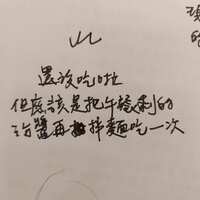 山
還沒吃啦
但應該是把午餐剩的
沾醬再拌麵吃一次